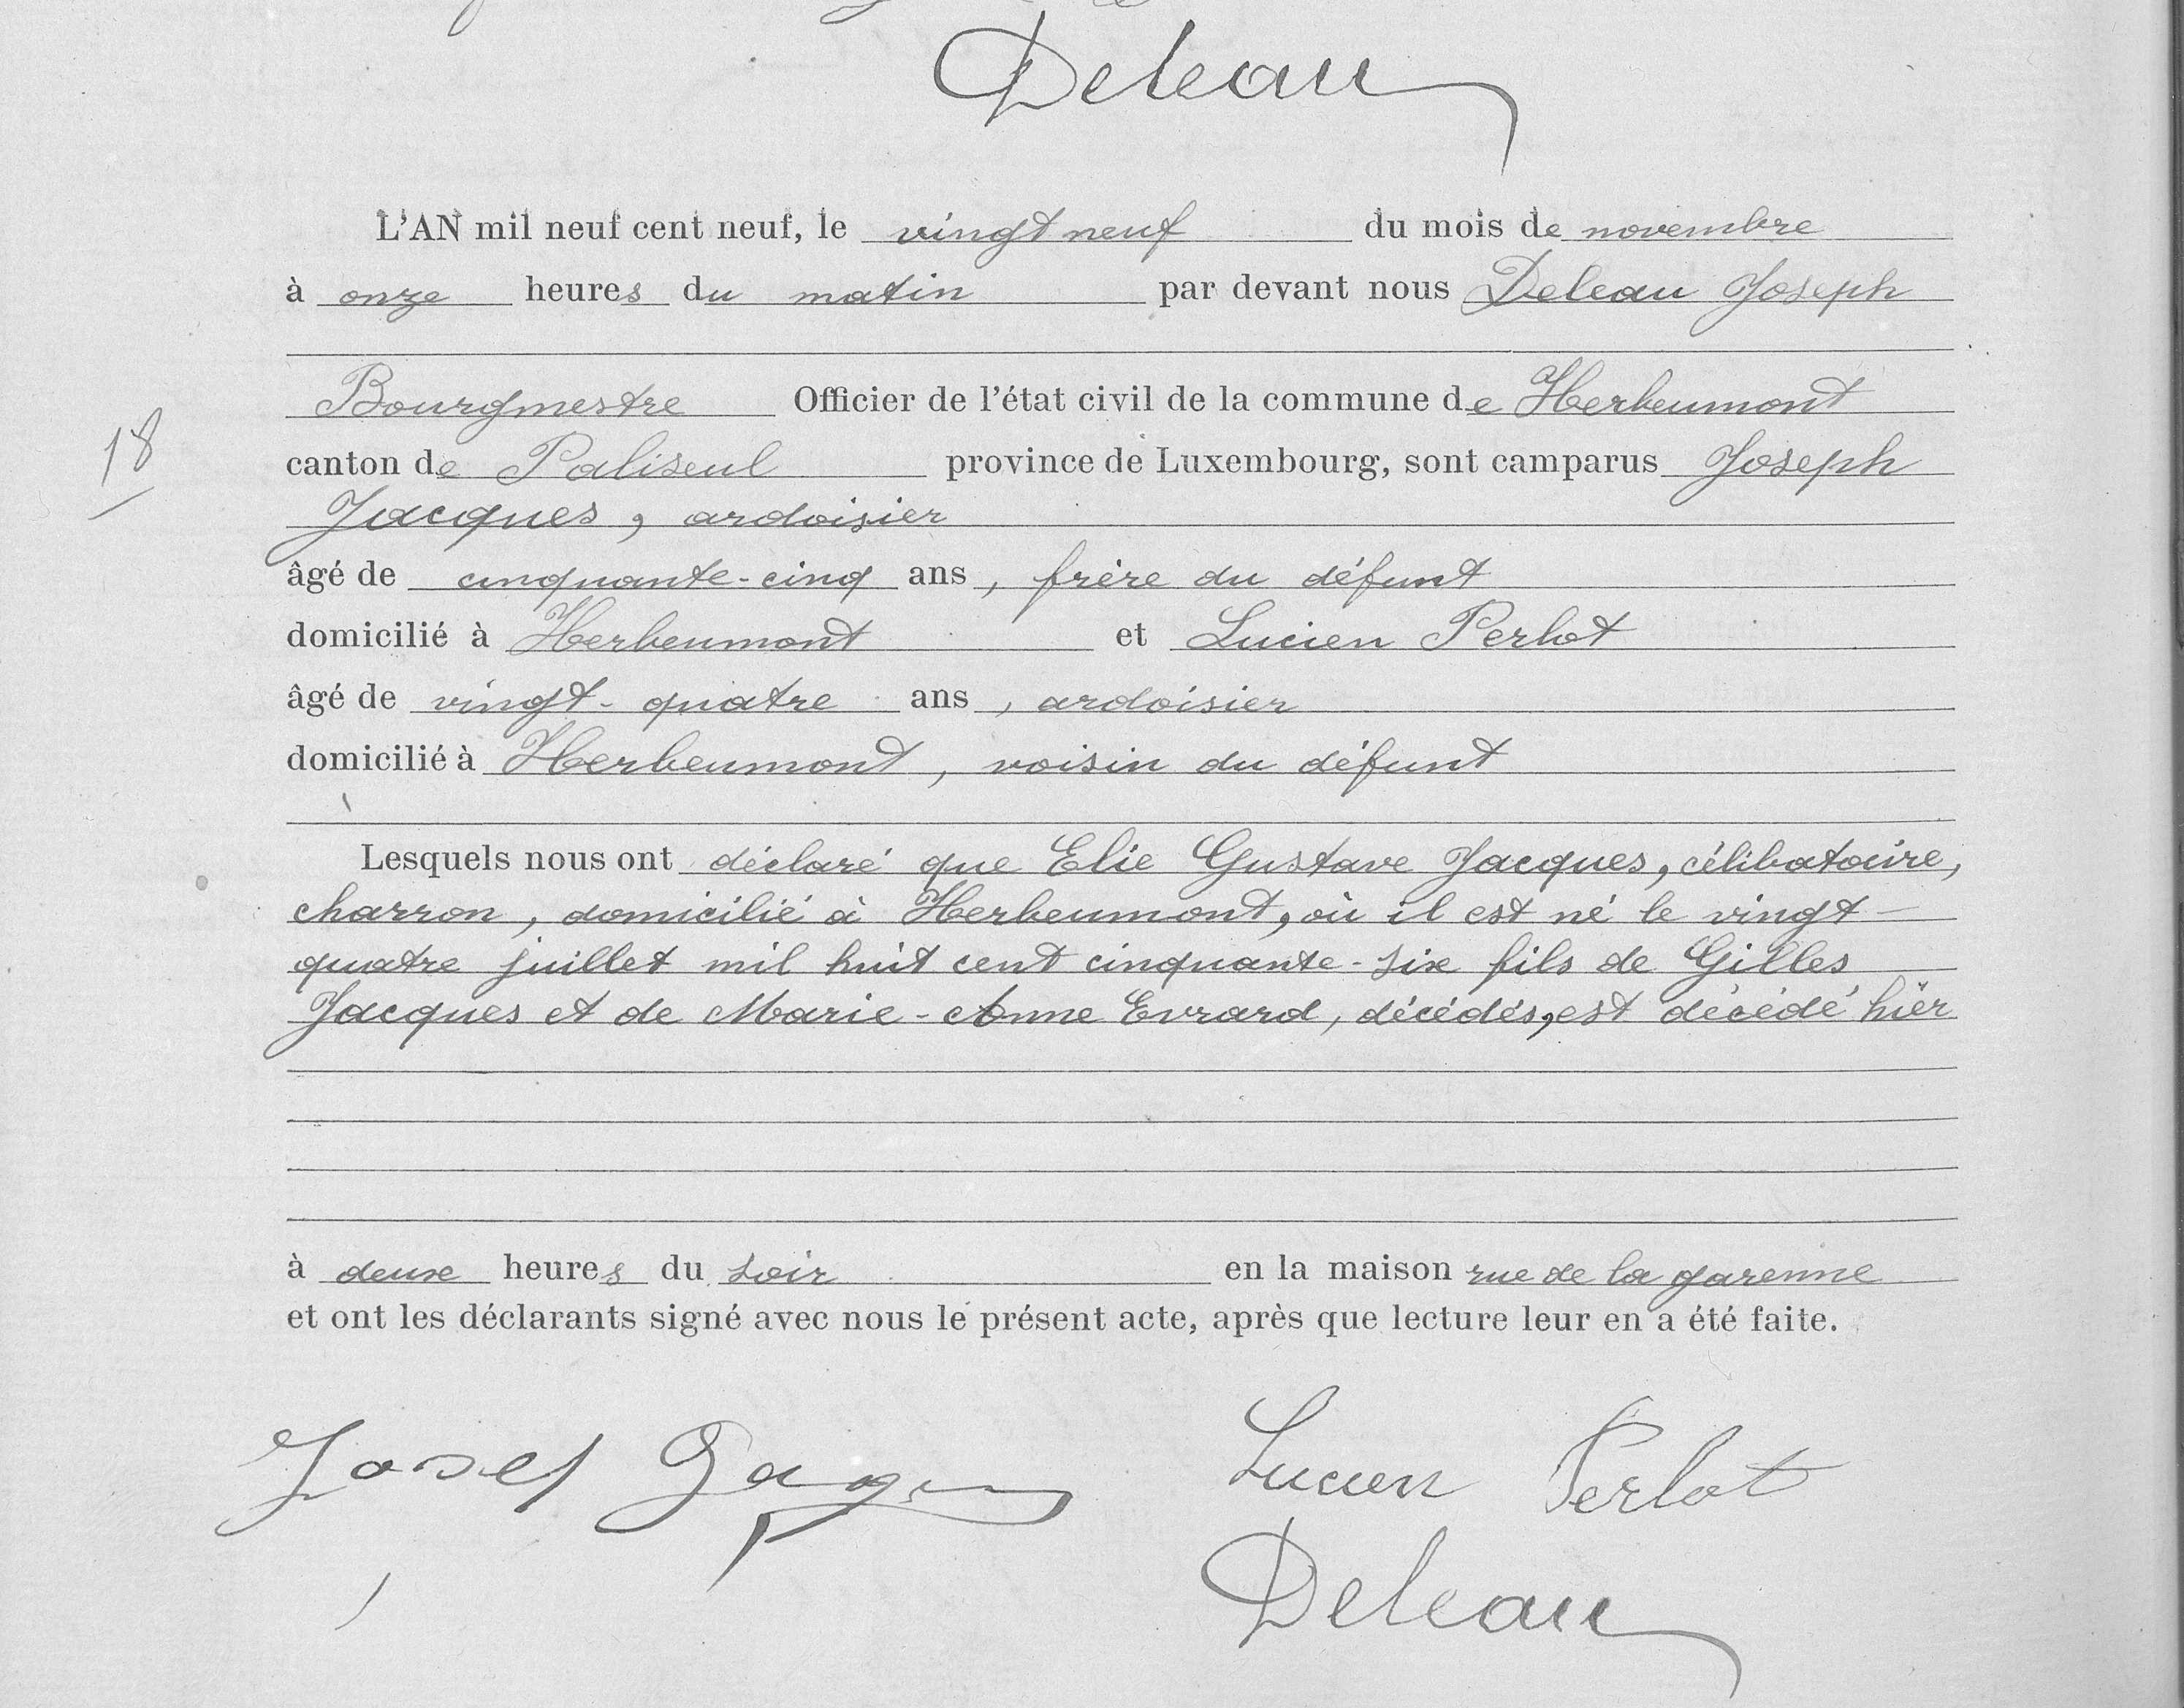 Deleau
L'AN mil neuf cent neuf, le vingt neuf du mois de novembre
à onze heures du matin par devant nous Deleau Joseph
Bourgmestre Officier de l'état civil de la commune de Herbeumont
18
canton de Paliseul province de Luxembourg, sont camparus Joseph
Jacques, ardoisier
âgé de cinquante-cinq ans, frère du défunt
domicilié à Herbeumont et Lucien Perlot
âgé de vingt-quatre ans, ardoisier
domicilié à Herbeumont, voisin du défunt
Lesquels nous ont déclaré que Elie Gustave Jacques, célibataire,
charron, domicilié à Herbeumont, où il est né le vingt-
quatre juillet mil huit cent cinquante-six fils de Gilles
Jacques et de Marie-Anne Evrard, décédés, est décédé hier
à deux heures du soir en la maison rue de la garenne
et ont les déclarants signé avec nous le présent acte, après que lecture leur en a été faite.
Josef Lucien Perlot
Deleau